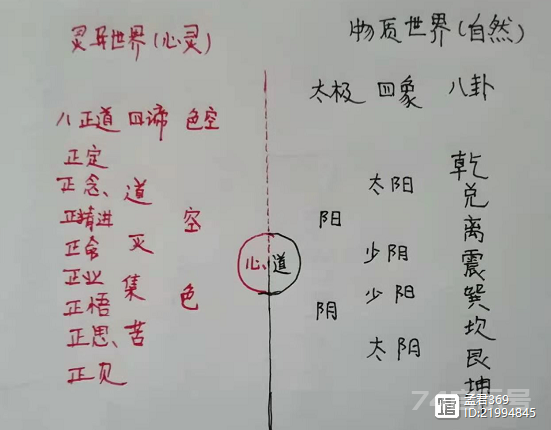 灵异世界(心灵)
物质世界(自然)
八正道 四谛 色空
太极 四象 八卦
正定
正念、道
正精进
空
正命 灭
正业 集
正悟
色
正思、苦
正见
心、道
乾
太阳
兑
阳
离
少阴
震
少阳
巽
阴
坎
太阳
艮
坤
孟君369
ID:21994845